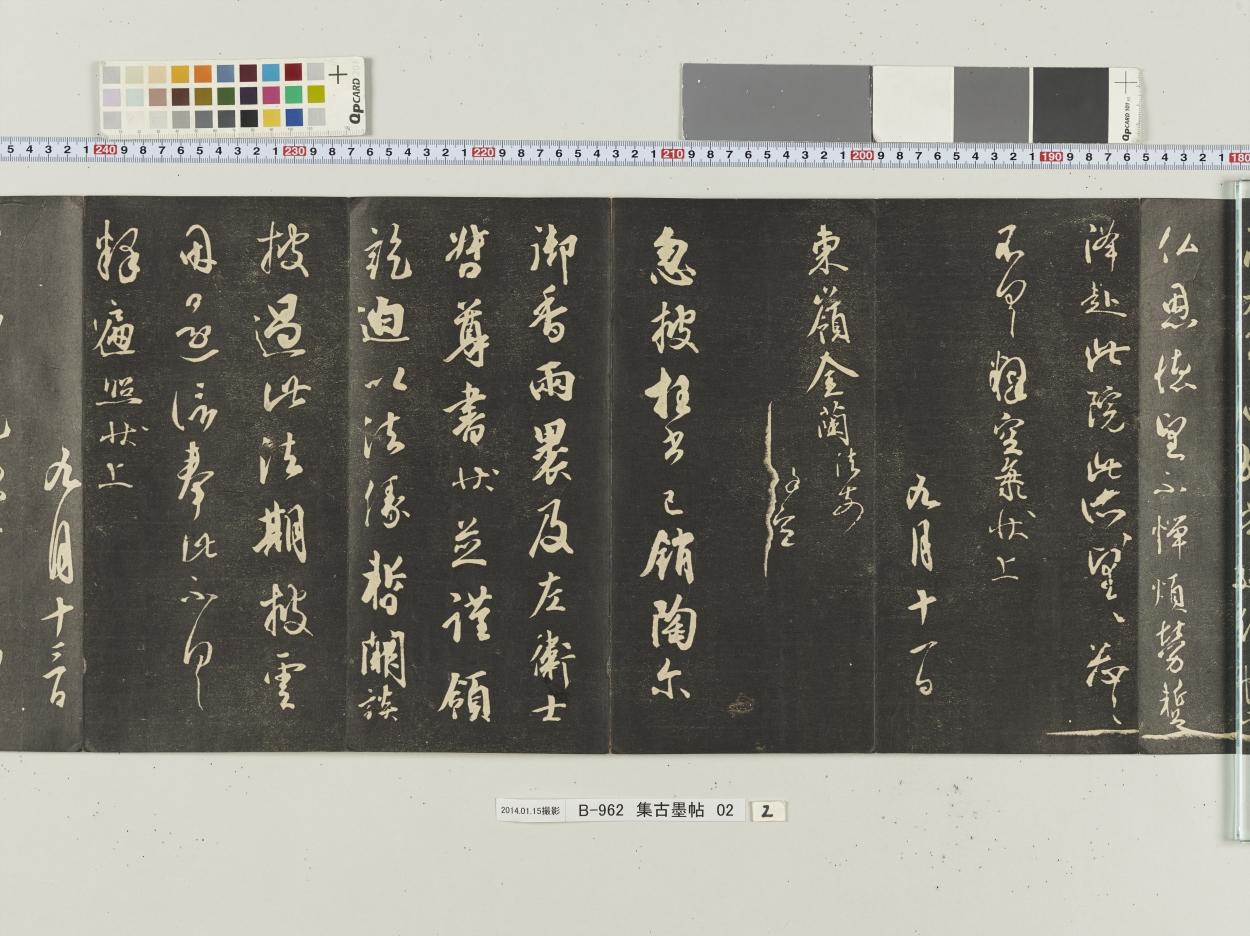 仏恩徳望不憚煩勞蹔
降赴此院此所望ゝ忩ゝ
不具釋空海状上
九月十一日
東嶺金蘭法前
謹空
忽披枉書已銷陶尓
御香兩裹及左衛士
督尊書状並謹領
訖迫以法縁暫闕談
披過此法期披雲
因還信奉此不具
釋遍照状上
九月十三日
2014.01.15撮影 B-962 集古墨帖 02 2
QPCARD 201
QPCARD 101
5 4 3 2 1 240 9 8 7 6 5 4 3 2 1 230 9 8 7 6 5 4 3 2 1 220 9 8 7 6 5 4 3 2 1 210 9 8 7 6 5 4 3 2 1 200 9 8 7 6 5 4 3 2 1 190 9 8 7 6 5 4 3 2 1 180